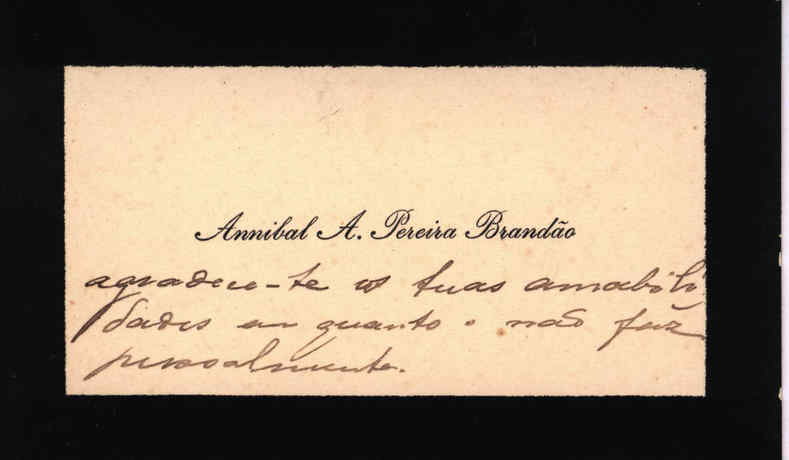 Annibal A. Pereira Brandão
agradece-te as tuas amabili
dades em quanto o não faz
pessoalmente.